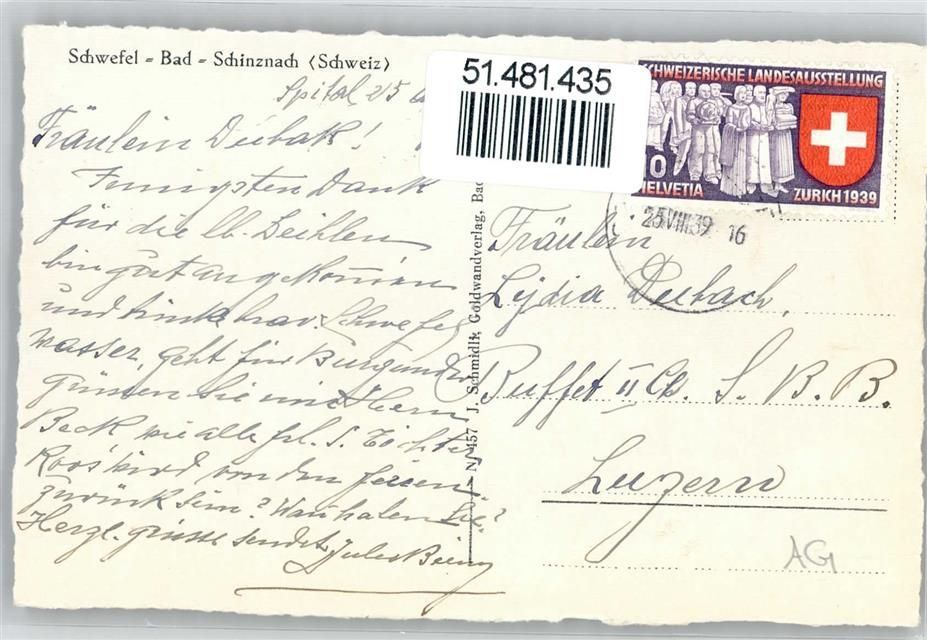 Schwefel - Bad - Schinznach (Schweiz)
Spital 25
Fräulein Deubak!
Innigsten Dank
für die lb. Zeihlen
bin gut angekommen
und trinke brav Schwefel
wasser, geht für Burgunder
Grüssen Sie mir Herrn
Beck wie alle frl. S. Töchter
Roos wird von den ferien
zurück sein? Wan haben Sie?
Herzl. grüsse sendet Jules
N. 457 J. Schmidli, Goldwandverlag, Bad
51.481.435
SCHWEIZERISCHE LANDESAUSSTELLUNG
10
HELVETIA
ZURICH 1939
25.VIII.39 16
Fräulein
Lydia Deubach,
Buffet II Cl. S. B. B.
Luzern
AG